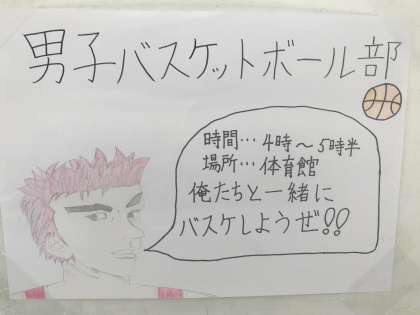 男子バスケットボール部
時間…4時～5時半
場所…体育館
俺たちと一緒に
バスケしようぜ!!